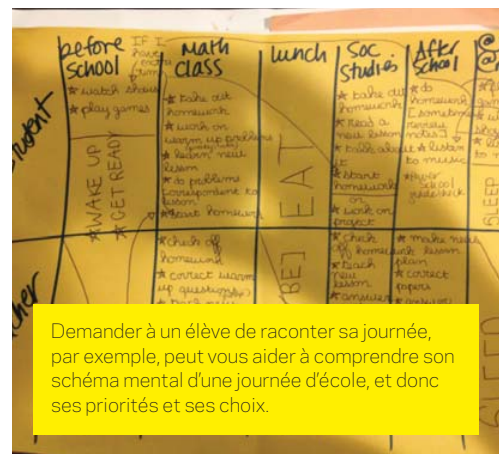 before
SCHOOL
IF I
have
extra
time
★ watch shows
★ play games
★ WAKE UP
★ GET READY
Math
CLASS
★ take out
homework
★ work on
warm up problems
★ learn new
lesson
★ do problems
correspondent to
lesson
★ start homework
lunch
EAT
SOC.
Studies
★ take out
homework
★ read a
new lesson
★ talk about
it
★ start
homework
or
★ work on
project
After
School
★ do
homework
[sometimes
review
notes]
★ listen
to music
SLEEP
★ check off
homework
★ correct warm
up questions
★ check
off homework
★ teach
new
lesson
★ make new
lesson
plan
★ correct
papers
SLEEP
Demander à un élève de raconter sa journée,
par exemple, peut vous aider à comprendre son
schéma mental d'une journée d'école, et donc
ses priorités et ses choix.